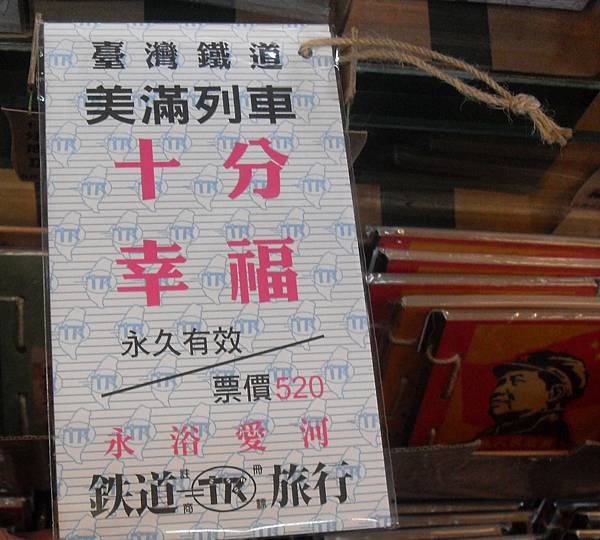 臺灣鐵道
美滿列車
十分
幸福
永久有效
票價520
永浴愛河
鉄道 註商 TR 冊標 旅行